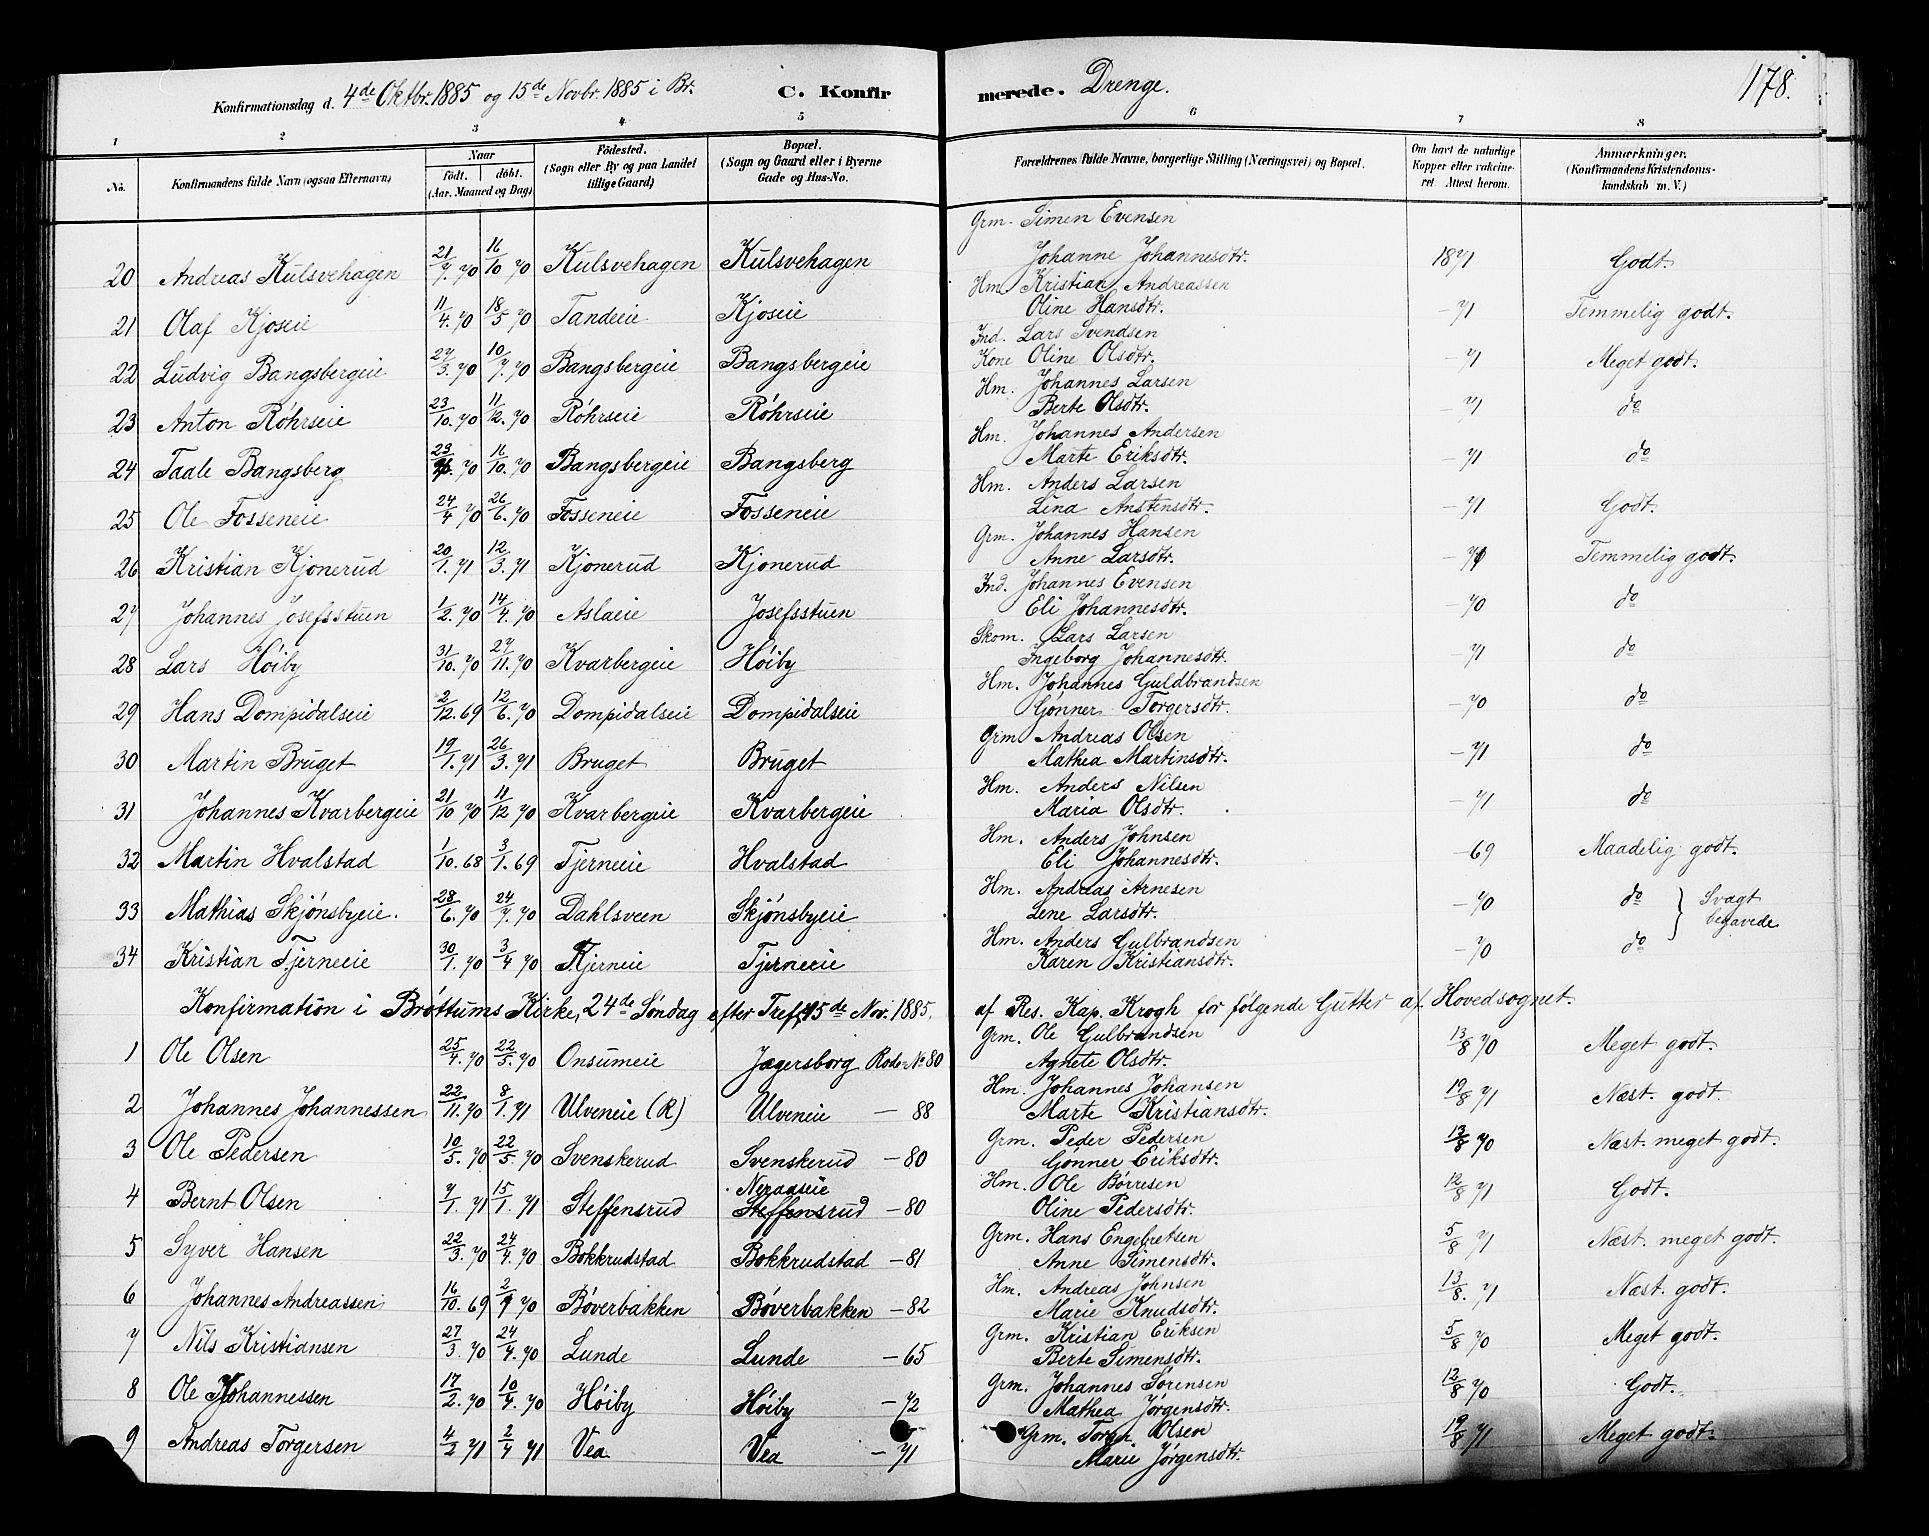 Konfirmationsdag d. 4de Oktbr. 1885 og 15de Novbr. 1885 i Br. C. Konfirmerede. Drenge. 178.
1 2 3 4 5 6 7 8
No. Konfirmandens fulde Navn (ogsaa Efternavn) Naar født. døbt. (Aar, Maaned og Dag) Fødested. (Sogn eller By og paa Landet tillige Gaard) Bopæl. (Sogn og Gaard eller i Byerne Gade og Hus-No. Forældrenes fulde Navne, borgerlige Stilling (Næringsvei) og Bopæl. Om havt de naturlige Kopper eller vakcineret. Attest herom. Anmærkninger. (Konfirmandens Kristendomskundskab m. V.)
Grm. Simen Evensen
20 Andreas Kulsvehagen 21/7. 70 16/10 70 Kulsvehagen Kulsvehagen Johanne Johannesdtr. 1871 Godt.
Hm. Kristian Andreassen
21 Olaf Kjoseie 11/4. 70 18/5 70 Tandeeie Kjoseie Oline Hansdtr. -71 Temmelig godt.
Ind. Lars Svendsen
22 Ludvig Bangsbergeie 27/3. 70 10/7. 70 Bangsbergeie Bangsbergeie Kone Oline Olsdtr. -71 Meget godt.
Hm. Johannes Larsen
23 Anton Röhrseie 23/10. 70 11/12. 70 Röhrseie Röhrseie Berte Olsdtr. -71 do
Hm. Johannes Andersen
24 Taale Bangsberg 23/ 70 16/10. 70 Bangsbergeie Bangsberg Marte Eriksdtr. -71 do
Hm. Anders Larsen
25 Ole Fosseneie 24/4 70 26/6. 70 Fosseneie Fosseneie Lina Anstensdtr. -71 Godt.
Grm. Johannes Hansen
26 Kristian Kjonerud 20/1. 71 12/3. 71 Kjonerud Kjonerud Anne Larsdtr. -71 Temmelig godt.
Ind. Johannes Evensen
27 Johannes Josefsstuen 1/2. 70 14/4. 70 Aslaeie Josefsstuen Eli Johannesdtr. -70 do
Skom. Lars Larsen
28 Lars Höiby 31/10. 70 27/11. 70 Kvarbergeie Höiby Ingeborg Johannesdtr. -71 do
Hm. Johannes Guldbrandsen
29 Hans Dompidalseie 2/12. 69 12/6. 70 Dompidalseie Dompidalseie Gönner Torgersdtr. -70 do
Grm Andreas Olsen
30 Martin Bruget 19/1. 71 26/3. 71 Bruget Bruget Mathea Martinsdtr. -71 do
Hm. Anders Nilsen
31 Johannes Kvarbergeie 21/10 70 11/12 70 Kvarbergeie Kvarbergeie Maria Olsdtr. -71 do
Hm. Anders Johnsen
32 Martin Hvalstad 1/10. 68 3/1. 69 Tjerneeie Hvalstad Eli Johannesdtr. -69 Maadelig godt.
Hm. Andreas Arnesen
33 Mathias Skjönsbyeie. 28/6. 70 24/7. 70 Dahlsveen Skjönsbyeie Lene Larsdtr. -70 do } Svagt begavede
Hm. Anders Gulbrandsen
34 Kristian Tjerneeie 30/1. 70 3/4 70 Tjerneie Tjerneeie Karen Kristiansdtr. -70 do
Konfirmation i Bröttums Kirke, 24de Söndag efter Tref. 15de Nov. 1885. af Res. Kap. Krogh for fölgende Gutter af Hovedsognet.
Grm. Ole Gulbrandsen
1 Ole Olsen 25/4. 70 22/5. 70 Onsumeie Jægersborg Rode No 80 Agnete Olsdtr. 13/8 70 Meget godt.
Hm. Johannes Johansen
2 Johannes Johannessen 22/11. 70 8/1. 71 Ulveneie (R) Ulveneie - 88 Marte Kristiansdtr. 19/8 71 Næst. godt.
Grm. Peder Pedersen
3 Ole Pedersen 10/5. 70 22/5. 70 Svenskerud Svenskerud - 80 Gönner Eriksdtr. 13/8 70 Næst. meget godt.
Neraaseie Hm. Ole Börresen
4 Bernt Olsen 7/1. 71 15/1. 71 Steffensrud Steffensrud - 80 Oline Pedersdtr. 12/8 71 Godt.
Grm. Hans Engebretsen
5 Syver Hansen 22/3. 70 24/4. 70 Bokkrudstad Bokkrudstad - 81 Anne Simensdtr. 5/8 71 Næst. meget godt.
Hm. Andreas Johnsen
6 Johannes Andreassen 16/10. 69 2/1 70 Böverbakken Böverbakken - 82 Marie Knudsdtr. 13/8. 71 Næst. godt.
Grm. Kristian Eriksen
7 Nils Kristiansen 27/3. 70 24/4. 70 Lunde Lunde - 65 Berte Simensdtr. 5/8 70 Meget godt.
Grm. Johannes Sörensen
8 Ole Johannessen 17/2. 70 10/4. 70 Höiby Höiby - 72 Mathea Jörgensdtr. 12/8 70 Godt.
Grm. Torger Olsen
9 Andreas Torgersen 4/2 71 2/4 71 Vea Vea - 71 Marie Jörgensdtr. 19/8 71 Meget godt.